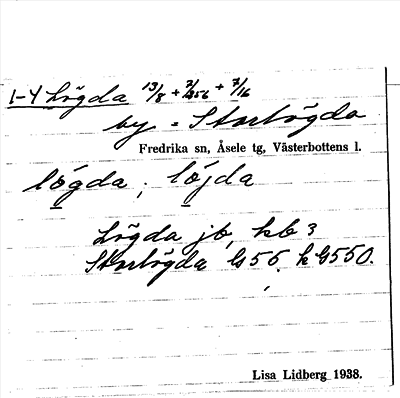 1-4 Lögda 13/8 + 2/256 + 7/16
by = Storlögda
Fredrika sn, Åsele tg, Västerbottens l.
lögda ; löjda
Lögda jb, kb 3
Storlögda G56 k G550.
Lisa Lidberg 1938.